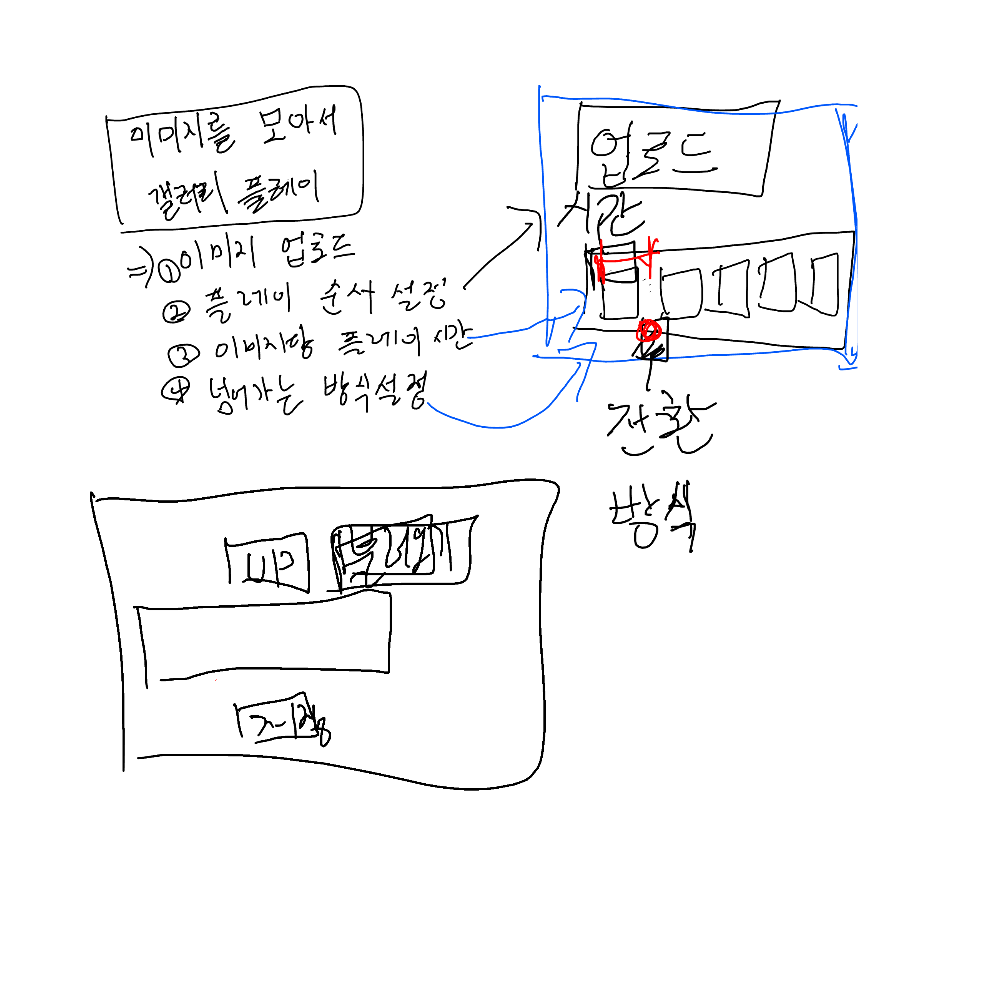 이미지를 모아서
갤러리 플레이
⇒ ① 이미지 업로드
② 플레이 순서 설정
③ 이미지당 플레이 시간
④ 넘어가는 방식설정
업로드
시간
전환
방식
UP
불러오기
저장